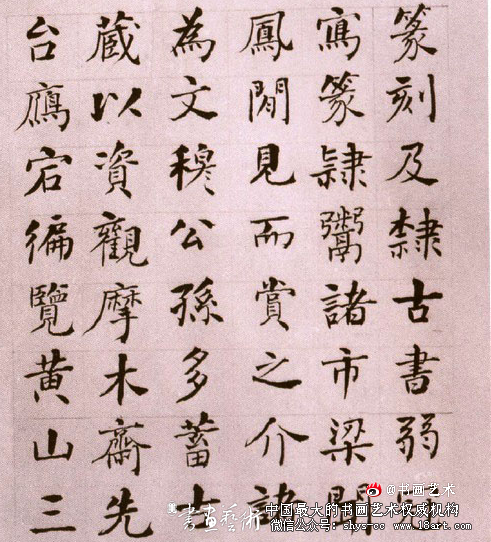 篆刻及隸古書弱
寫篆隸鬻諸市梁
鳳閒見而賞之介諸
為文穆公孫多蓄
蔵以資觀摩木齋先
台鴈宕徧覽黄山三
@书画艺术
書畫藝術
中国最大的书画艺术权威机构
微信公众号：shys-cc www.18art.com